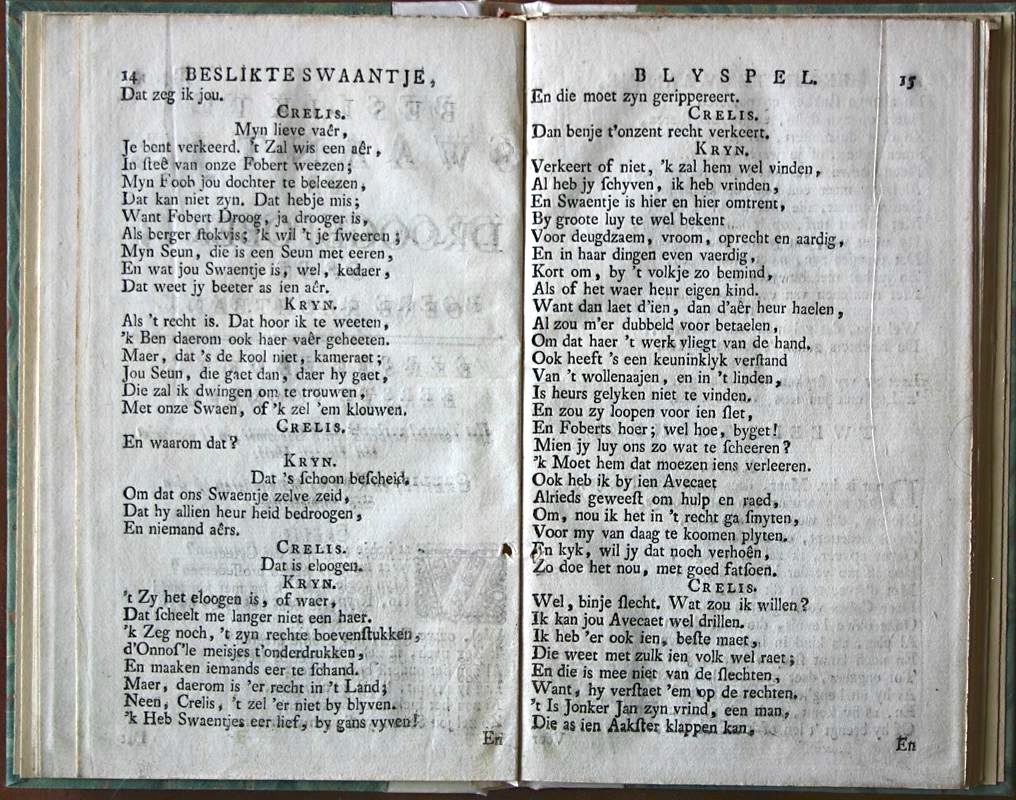 14 BESLIKTE SWAANTJE,
Dat zeg ik jou.
CRELIS.
Myn lieve vaêr,
Je bent verkeerd. 't Zal wis een aêr,
In ſteê van onze Fobert weezen;
Myn Foob jou dochter te beleezen,
Dat kan niet zyn. Dat hebje mis;
Want Fobert Droog, ja drooger is,
Als berger ſtokvis; 'k wil 't je ſweeren;
Myn Seun, die is een Seun met eeren,
En wat jou Swaentje is, wel, kedaer,
Dat weet jy beeter as ien aêr.
KRYN.
Als 't recht is. Dat hoor ik te weeten,
'k Ben daerom ook haer vaêr geheeten.
Maer, dat 's de kool niet, kameraet;
Jou Seun, die gaet dan, daer hy gaet,
Die zal ik dwingen om te trouwen,
Met onze Swaen, of 'k zel 'em klouwen.
CRELIS.
En waarom dat?
KRYN.
Dat 's ſchoon beſcheid.
Om dat ons Swaentje zelve zeid,
Dat hy allien heur heid bedroogen,
En niemand aêrs.
CRELIS.
Dat is eloogen.
KRYN.
't Zy het eloogen is, of waer,
Dat ſcheelt me langer niet een haer.
'k Zeg noch, 't zyn rechte boevenſtukken,
d'Onnoſ'le meisjes t'onderdrukken,
En maaken iemands eer te ſchand.
Maer, daerom is 'er recht in 't Land;
Neen, Crelis, 't zel 'er niet by blyven.
'k Heb Swaentjes eer lief, by gans vyven!
En
BLYSPEL. 15
En die moet zyn gerippereert.
CRELIS.
Dan benje t'onzent recht verkeert.
KRYN.
Verkeert of niet, 'k zal hem wel vinden,
Al heb jy ſchyven, ik heb vrinden,
En Swaentje is hier en hier omtrent,
By groote luy te wel bekent
Voor deugdzaem, vroom, oprecht en aardig,
En in haar dingen even vaerdig,
Kort om, by 't volkje zo bemind,
Als of het waer heur eigen kind.
Want dan laet d'ien, dan d'aêr heur haelen,
Al zou m'er dubbeld voor betaelen,
Om dat haer 't werk vliegt van de hand.
Ook heeft 's een keuninklyk verſtand
Van 't wollenaajen, en in 't linden,
Is heurs gelyken niet te vinden.
En zou zy loopen voor ien ſlet,
En Foberts hoer; wel hoe, byget!
Mien jy luy ons zo wat te ſcheeren?
'k Moet hem dat moezen iens verleeren.
Ook heb ik by ien Avecaet
Alrieds geweeſt om hulp en raed,
Om, nou ik het in 't recht ga ſmyten,
Voor my van daag te koomen plyten.
En kyk, wil jy dat noch verhoên,
Zo doe het nou, met goed fatſoen.
CRELIS.
Wel, binje ſlecht. Wat zou ik willen?
Ik kan jou Avecaet wel drillen.
Ik heb 'er ook ien, beſte maet,
Die weet met zulk ien volk wel raet;
En die is mee niet van de ſlechten,
Want, hy verſtaet 'em op de rechten.
't Is Jonker Jan zyn vrind, een man,
Die as ien Aakſter klappen kan,
En